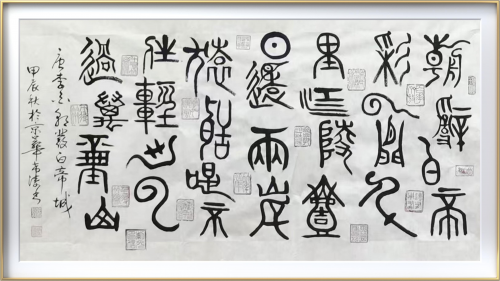 朝辭白帝
彩雲間千
里江陵壹
日還兩岸
猿聲啼不
住輕舟已
過萬重山
唐李白早發白帝城
甲辰秋於京華